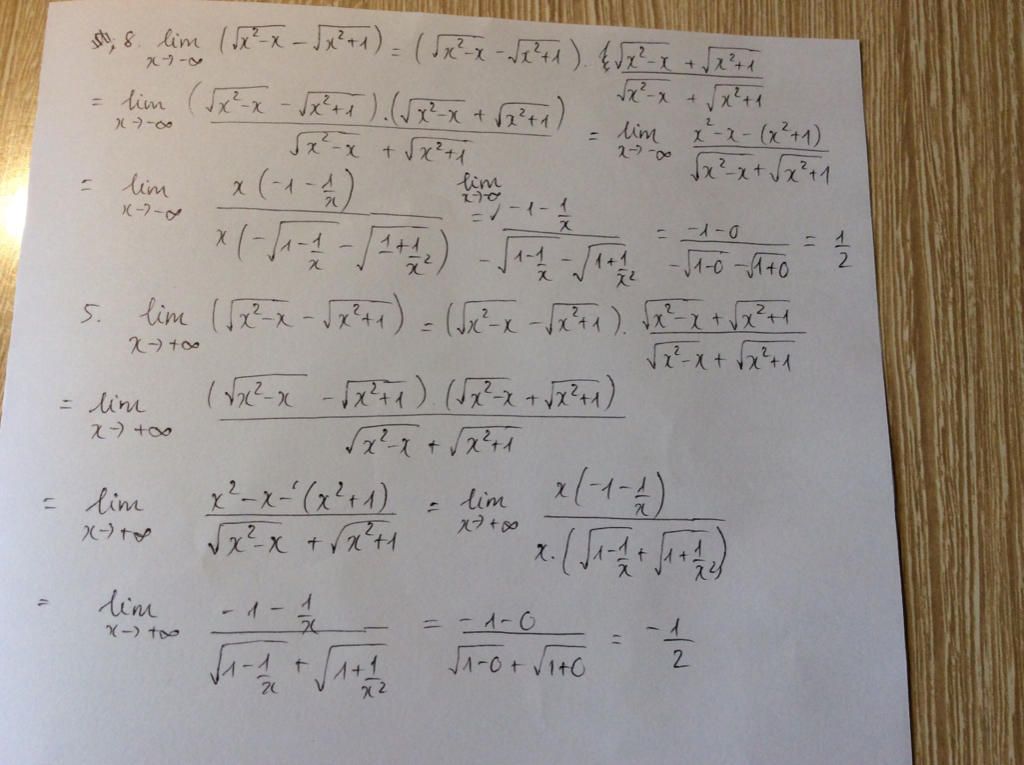 8. lim x→-∞ (√(x²-x) - √(x²+1)) = (√(x²-x) - √(x²+1)) . (√(x²-x) + √(x²+1))/(√(x²-x) + √(x²+1))
= lim x→-∞ ((√(x²-x) - √(x²+1)).(√(x²-x) + √(x²+1)))/(√(x²-x) + √(x²+1)) = lim x→-∞ (x²-x-(x²+1))/(√(x²-x) + √(x²+1))
= lim x→-∞ (x(-1-1/x))/(x(-√(1-1/x) - √(1+1/x²))) = lim x→-∞ (-1-1/x)/(-√(1-1/x) - √(1+1/x²)) = (-1-0)/(-√(1-0) - √(1+0)) = 1/2
5. lim x→+∞ (√(x²-x) - √(x²+1)) = (√(x²-x) - √(x²+1)) . (√(x²-x) + √(x²+1))/(√(x²-x) + √(x²+1))
= lim x→+∞ ((√(x²-x) - √(x²+1)).(√(x²-x) + √(x²+1)))/(√(x²-x) + √(x²+1))
= lim x→+∞ (x²-x-(x²+1))/(√(x²-x) + √(x²+1)) = lim x→+∞ (x(-1-1/x))/(x.(√(1-1/x) + √(1+1/x²)))
= lim x→+∞ (-1-1/x)/(√(1-1/x) + √(1+1/x²)) = (-1-0)/(√(1-0) + √(1+0)) = -1/2